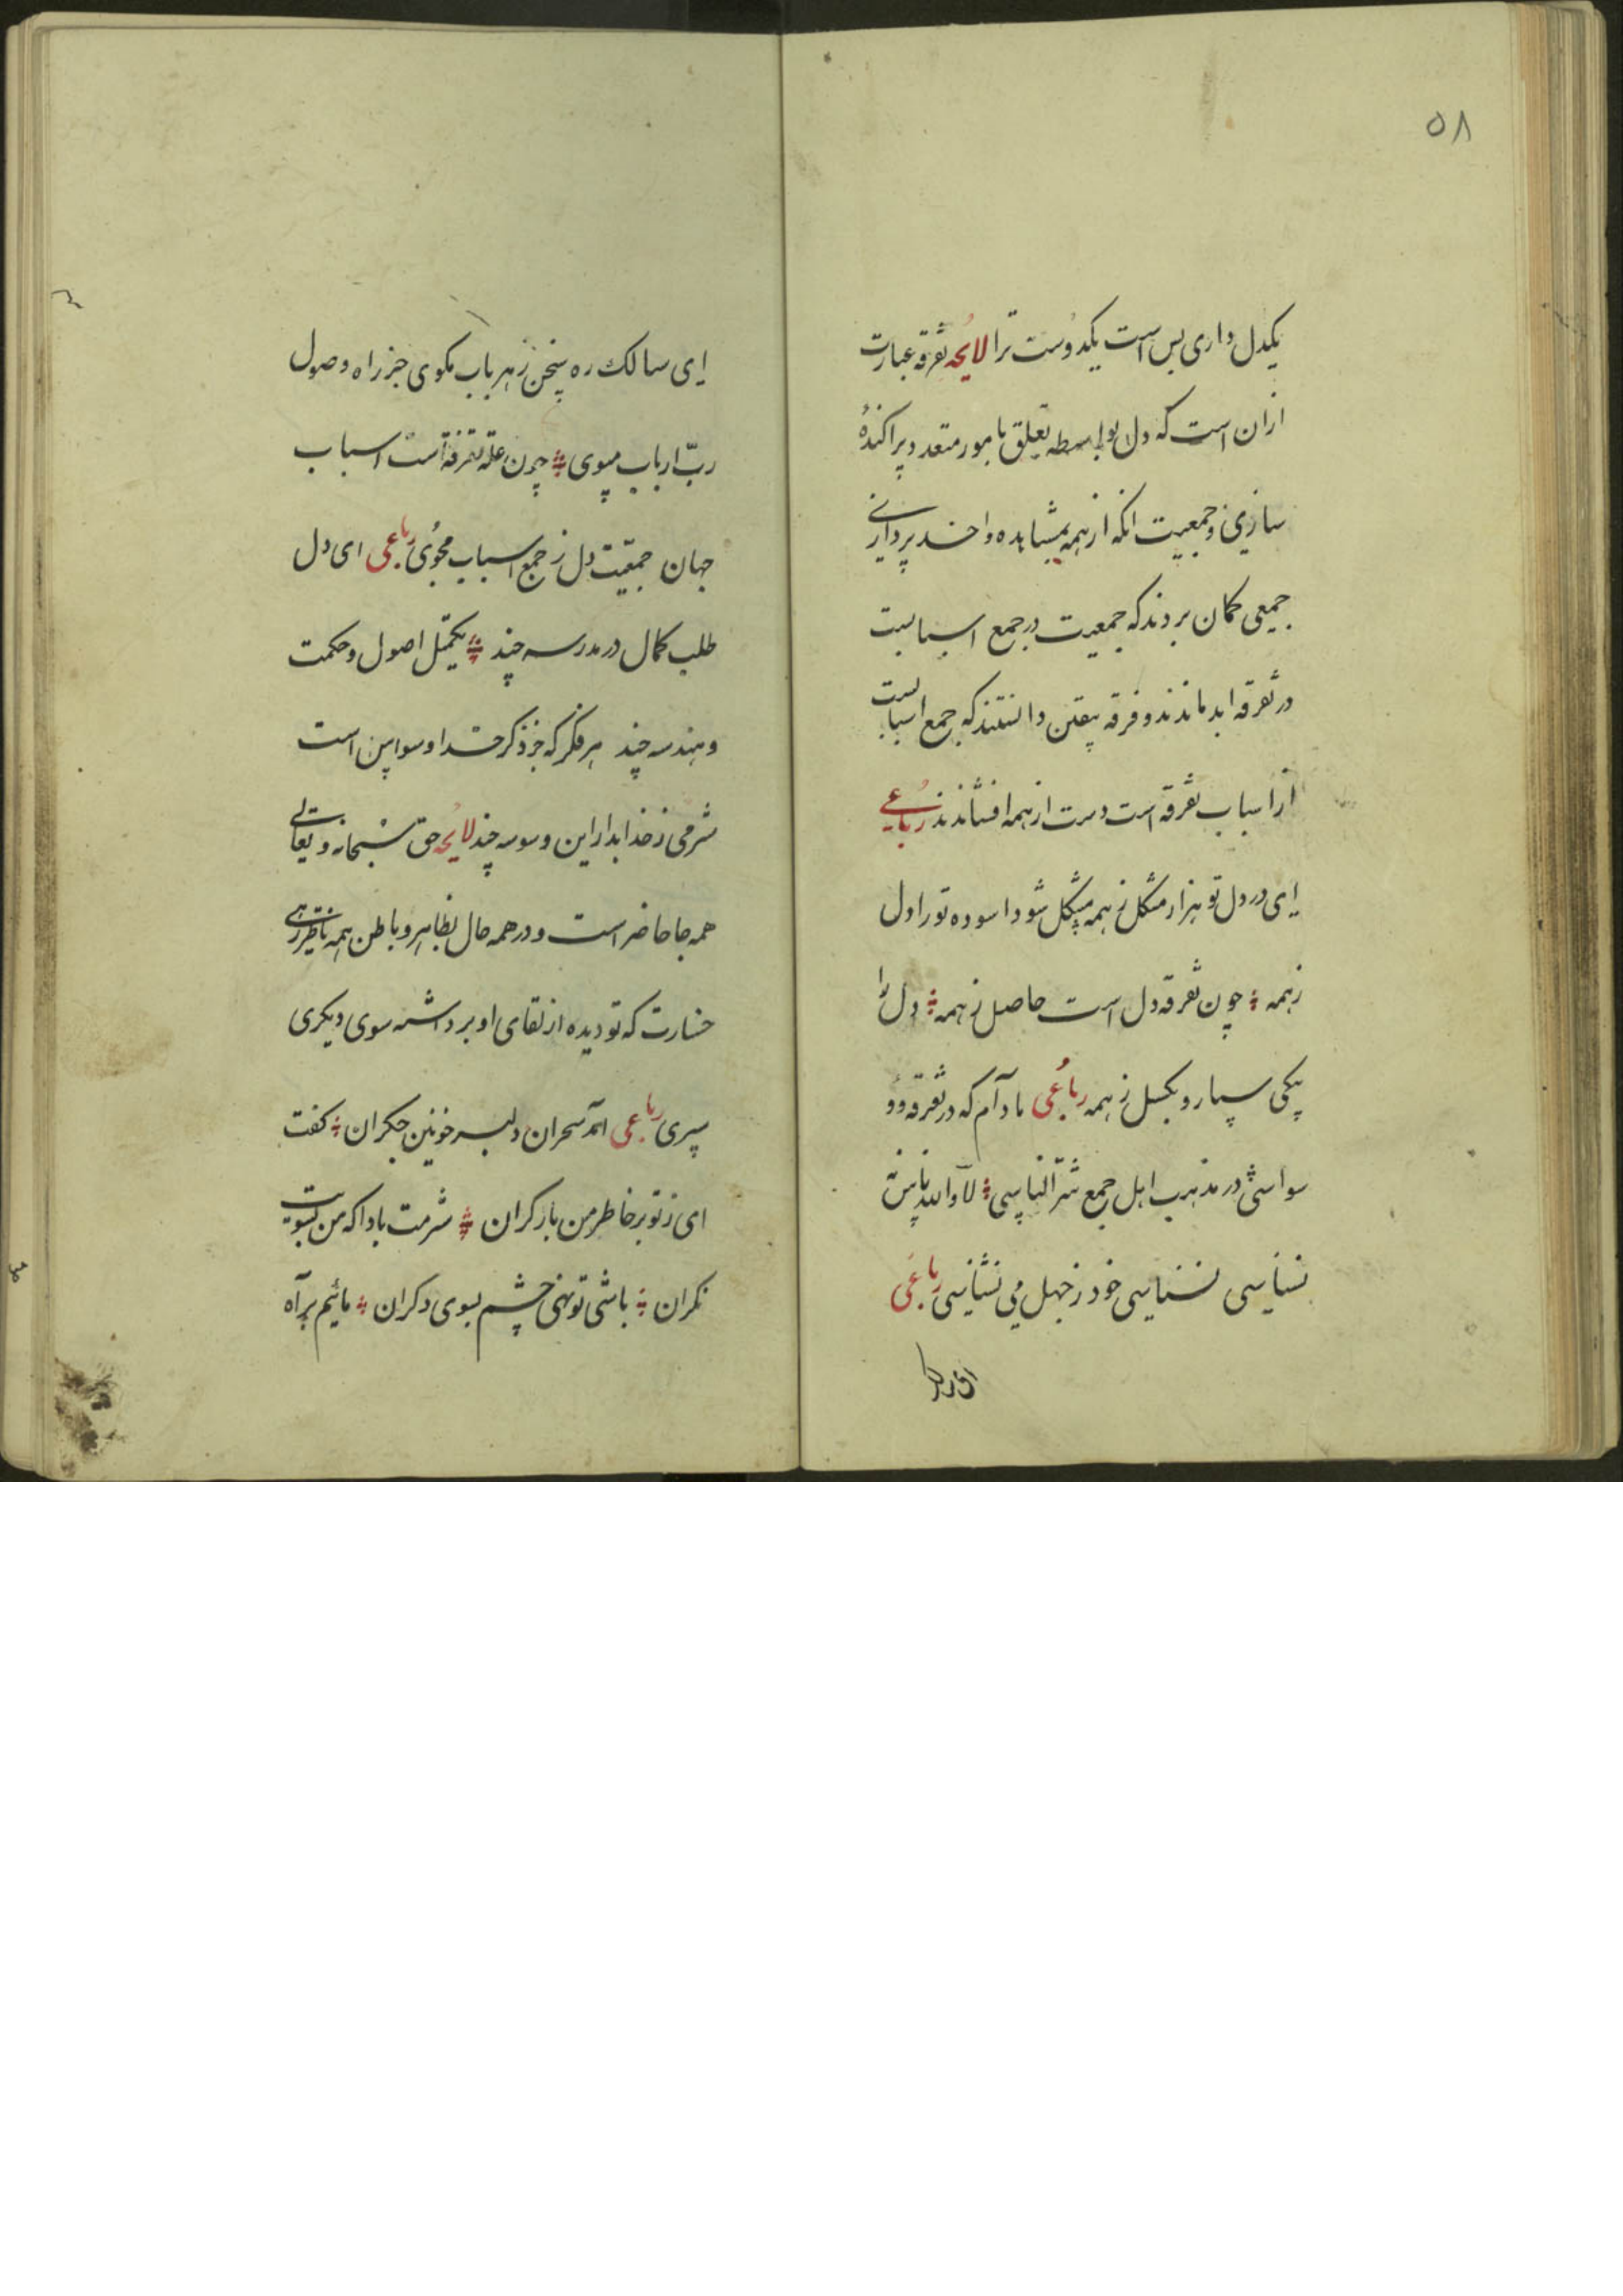 ۵۸
یکدل داری بس است یکدوست ترا لایحه تفرقه عبارت
ازان است که دل بواسطه تعلق بامور متعدد پراکنده
سازی و جمعیت انکه از همه بمشاهده واحد پردازی
جمعی کمان بردند که جمعیت در جمع اسبابست
در تفرقه ابد ماندند و فرقه بیقین دانستند که جمع اسباب
از اسباب تفرقه است دست از همه افشاندند رباعی
ای در دل تو هزار مشکل ز همه مشکل شود اسوده تو را دل
زهمه چون تفرقه دل است حاصل ز همه دل را
بیکی سپار و بکسل ز همه رباعی مادام که در تفرقه و
سواسی در مذهب اهل جمع شر الناسی لا والله ناس نه
نسناسی نسناسی خود ز جهل می نشناسی رباعی
ای سالک ره سخن ز هر باب مکوی جز راه وصول
رب ارباب مپوی چون علة تفرقه است اسباب
جهان جمعیت دل ز جمع اسباب مجوی رباعی ای دل
طلب کمال در مدرسه چند تکمیل اصول و حکمت
و هندسه چند هر فکر که جز ذکر خدا وسواس است
شرمی ز خدا بدار این وسوسه چند لایحه حق سبحانه و تعالی
همه جا حاضر است و در همه حال بظاهر و باطن همه ناظر زهی
خسارت که تو دیده از لقای او برداشته سوی دیکری
سپری رباعی امد سحران دلبر خونین جکران کفت
ای ز تو بر خاطر من بار کران شرمت بادا که من بسویت
نکران باشی تو نهی چشم بسوی دکران مائیم براه